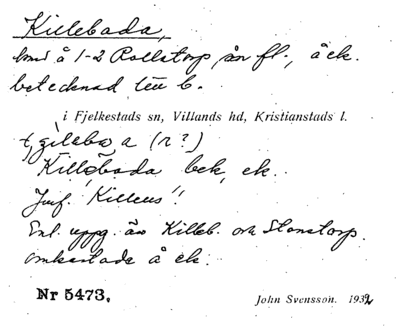 Killebada,
å 1-2 Rallstorp fl., å ek.
betecknad b.
i Fjelkestads sn, Villands hd, Kristianstads l.
a (r?)
Killebada bek, ek.
Jmf. Killeus!!
Enl. uppg. äv Killeb. och Stonstorp.
omkastade å ek.
Nr 5473.
John Svensson. 1932